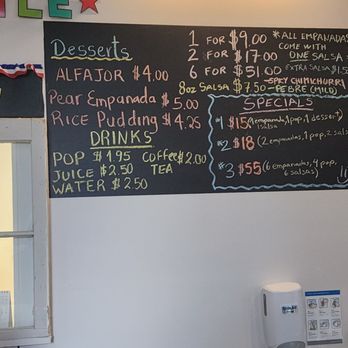 LE
Desserts
ALFAJOR $4.00
Pear Empanada $5.00
Rice Pudding $4.25
DRINKS
POP $1.95 Coffee $2.00
JUICE $2.50 TEA
WATER $2.50
1 FOR $9.00
2 FOR $17.00
6 FOR $51.00
*ALL EMPANADAS
COME WITH
ONE SALSA
EXTRA SALSA $1.5
8oz SALSA $7.50 -SPICY CHIMICHURRI
-PEBRE (MILD)
SPECIALS
#1 $15 (1 empanada, 1 pop, 1 dessert)
1 salsa
#2 $18 (2 empanadas, 1 pop, 2 sals
#3 $55 (6 empanadas, 4 pop,
6 salsas)